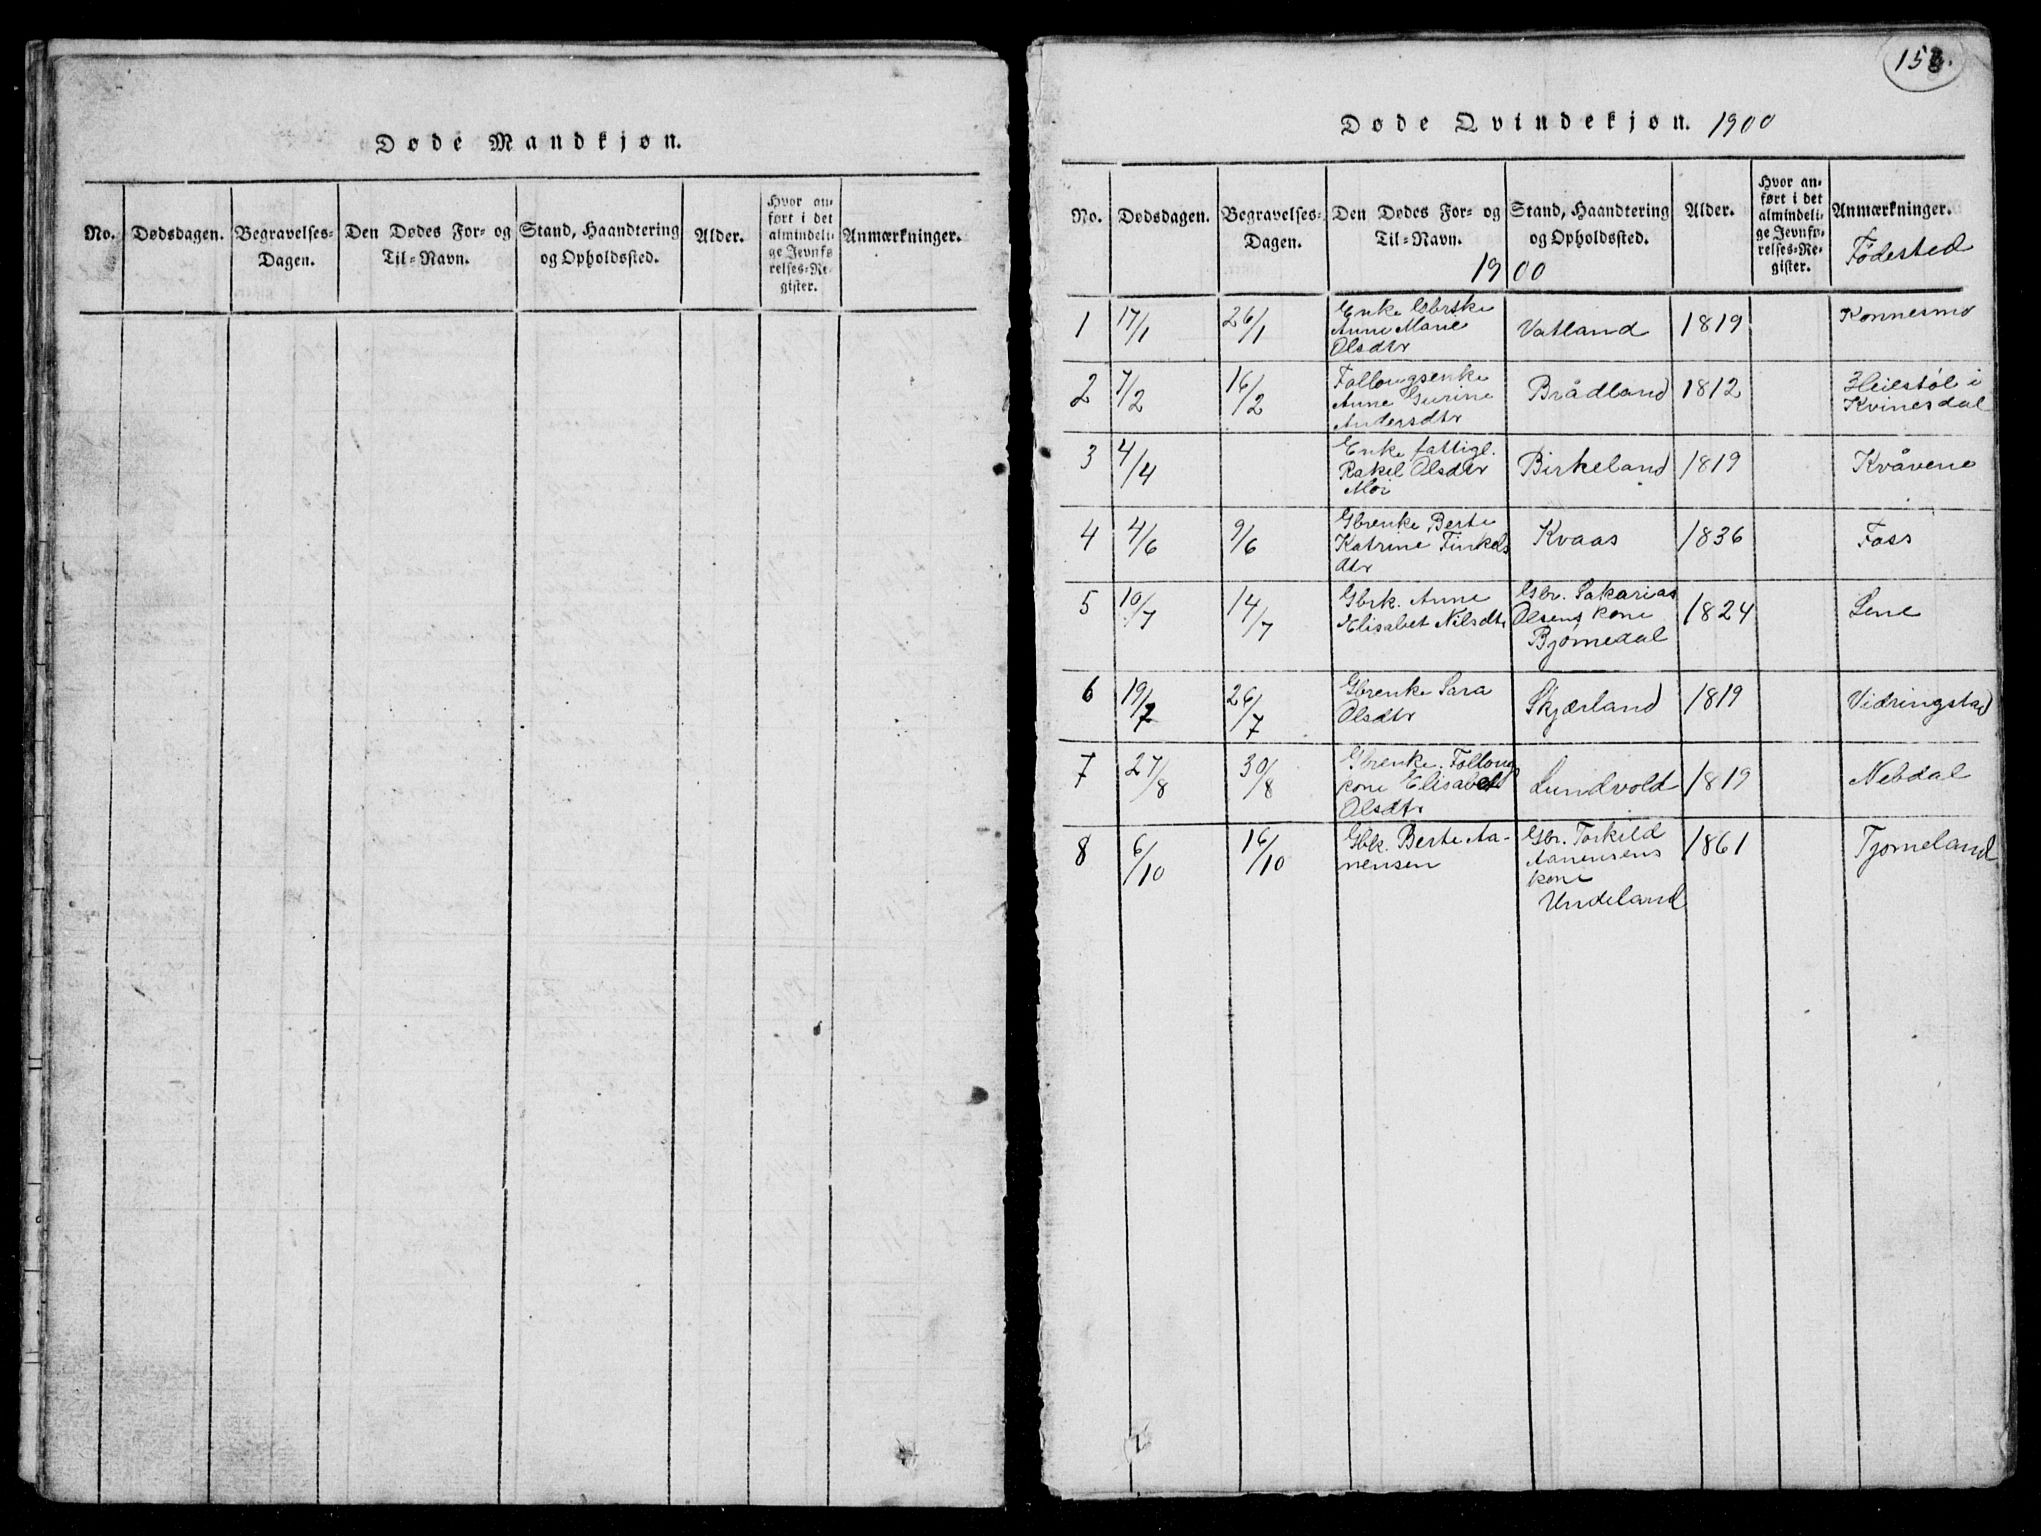 Døde Mandkjøn.
No.
Dødsdagen.
Begravelses-
Dagen.
Den Dødes For- og
Til-Navn.
Stand, Haandtering
og Opholdssted.
Alder.
Hvor an-
ført i det
almindeli-
ge Jevnfø-
relses-Re-
gister.
Anmærkninger.
Døde Qvindekjøn. 1900
No.
Dødsdagen.
Begravelses-
Dagen.
Den Dødes For- og
Til-Navn.
Stand, Haandtering
og Opholdssted.
Alder.
Hvor an-
ført i det
almindeli-
ge Jevnfø-
relses-Re-
gister.
Anmærkninger.
Fødested
1900
1
17/1
26/1
Enke
Anne Marie
Olsdtr
Vatland
1819
Konnesmo
2
7/2
16/2
Follougsenke
Anne Gurine
Andersdtr
Brådland
1812
Heilstøl i
Kvinesdal
3
4/4
Enke fattigl.
Rakel Olsdtr
Moi
Birkeland
1819
Kvåvene
4
4/6
9/6
Gbrenke Berte
Katrine Finkels
dtr
Kvaas
1836
Foss
5
10/7
14/7
Gbrk. Anne
Elisabet Nilsdtr
Gbr. Sakarias
Olsens kone
Bjørnedal
1824
Lene
6
19/7
26/7
Gbrenke Sara
Olsdtr
Skjærland
1819
Vidringstad
7
27/8
30/8
Gbrenke. Folloug
kone Elisabet
Olsdtr
Lundvold
1819
Nebdal
8
6/10
16/10
Gbk. Berte Aa-
nensen
Gbr. Torkild
Aanensens
kone
Undeland
1861
Tjomeland